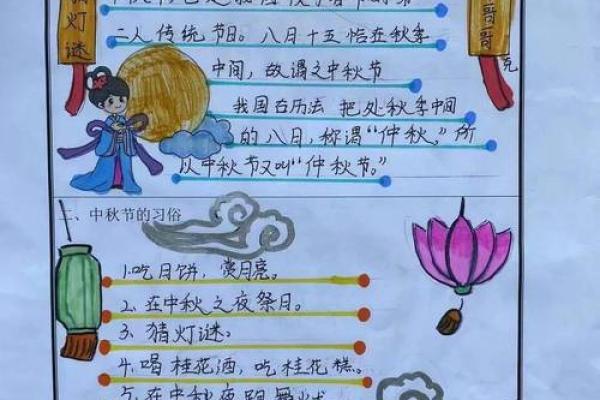 灯谜
二人传统节日。八月十五恰在秋季
中间，故谓之中秋节
我国古历法 把处秋季中间
的八日，称谓“仲秋，”所
以中秋节又叫“仲秋节。”
二、中秋节的习俗
1.吃月饼，赏月亮。
2、在中秋之夜祭月。
3、猜灯谜。
4、喝桂花酒，吃桂花糕。
5.在中秋夜